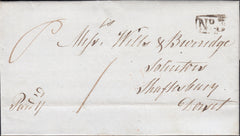 No
Messrs Wills & Burridge
Solicitors
Shaftesbury
Dorset
Paid